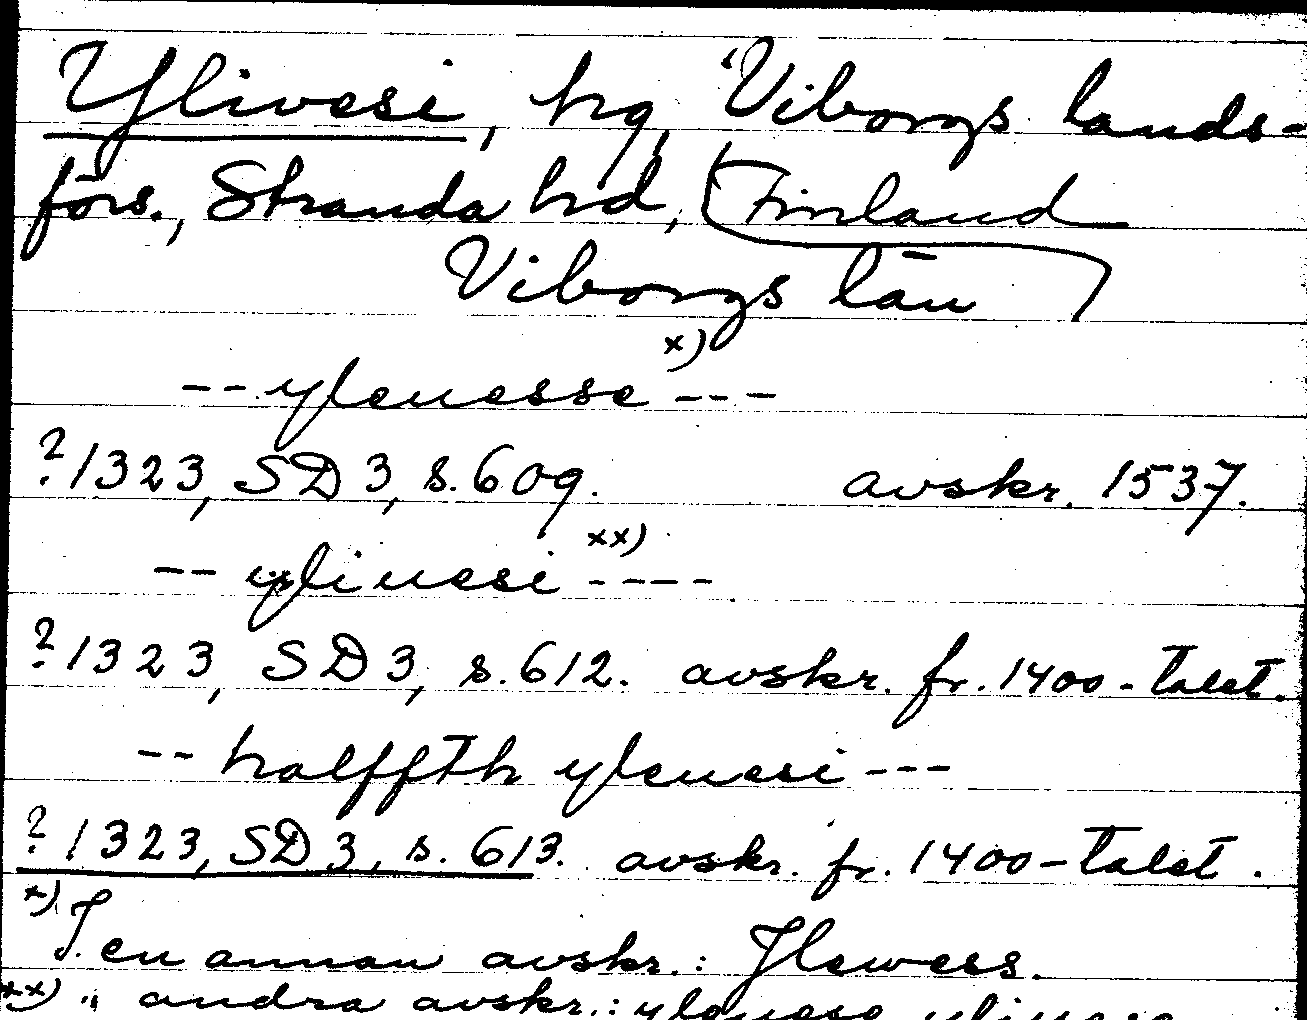 Ylivesi, hg, Viborgs lands-
förs., Stranda hd, Finland
Viborgs län
x)
-- ylenesse ---
? 1323, SD 3, s. 609. avskr. 1537.
xx)
-- ylinesi ----
? 1323, SD 3, s. 612. avskr. fr. 1400-talet.
-- halffth ylenesi ---
? 1323, SD 3, s. 613. avskr. fr. 1400-talet.
x) I en annan avskr.: Jlewess.
xx) " andra avskr.: